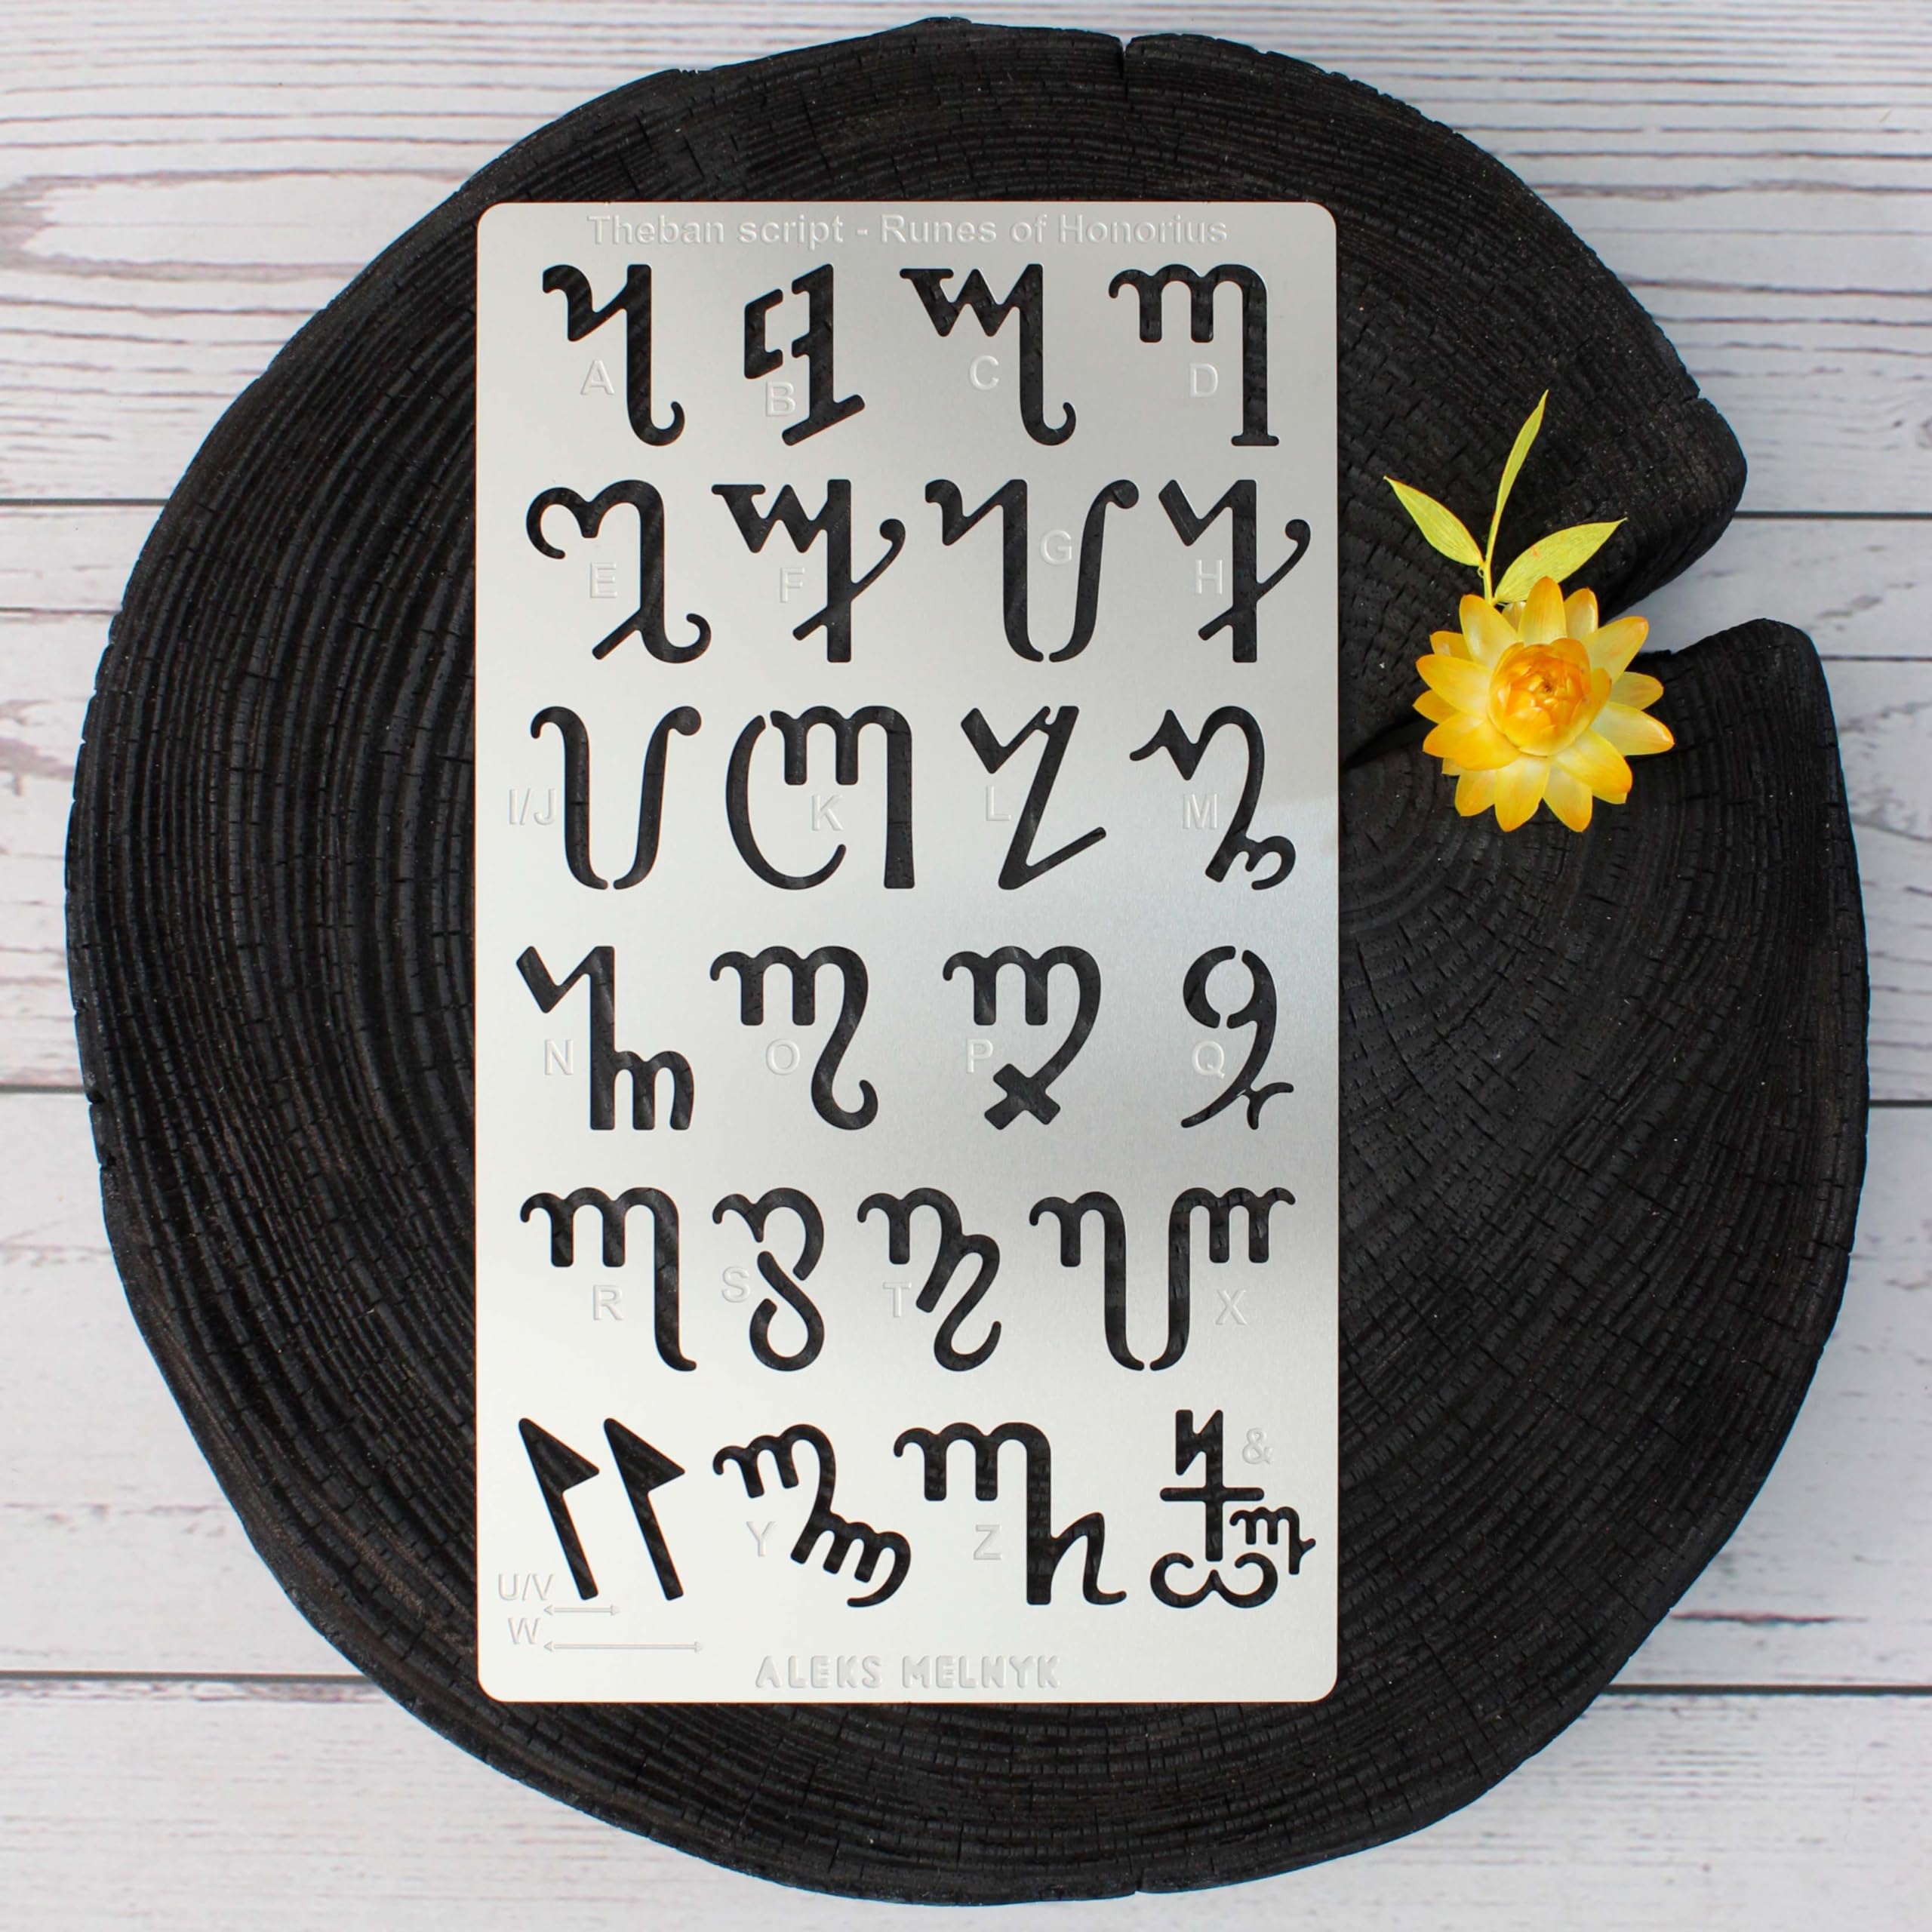 Theban script - Runes of Honorius
A B C D
E F G H
I/J K L M
N O P Q
R S T X
U/V Y Z &
W
ALEKS MELNYK